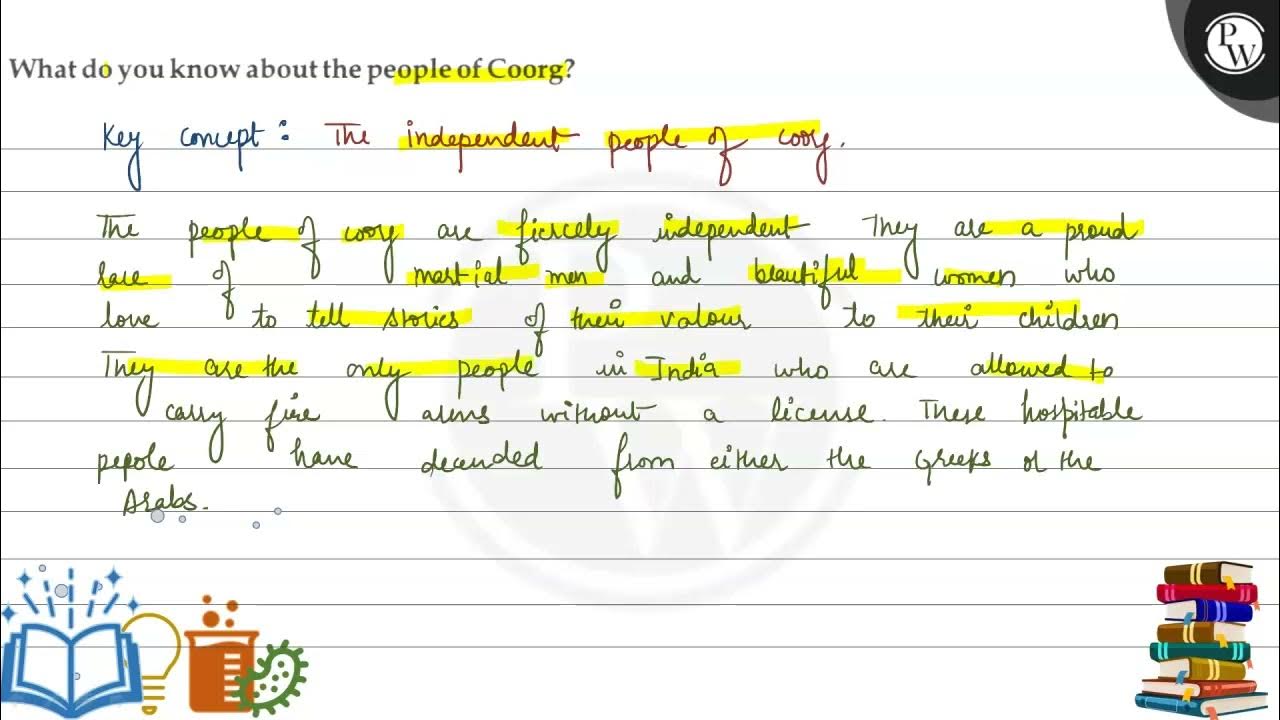 What do you know about the people of Coorg?
PW
Key concept: The independent people of coorg.
The people of coorg are fiercely independent They are a proud
race of martial men and beautiful women who
love to tell stories of their valour to their children
They are the only people in India who are allowed to
carry fire arms without a license. These hospitable
pepole have decended from either the Greeks or the
Arabs.